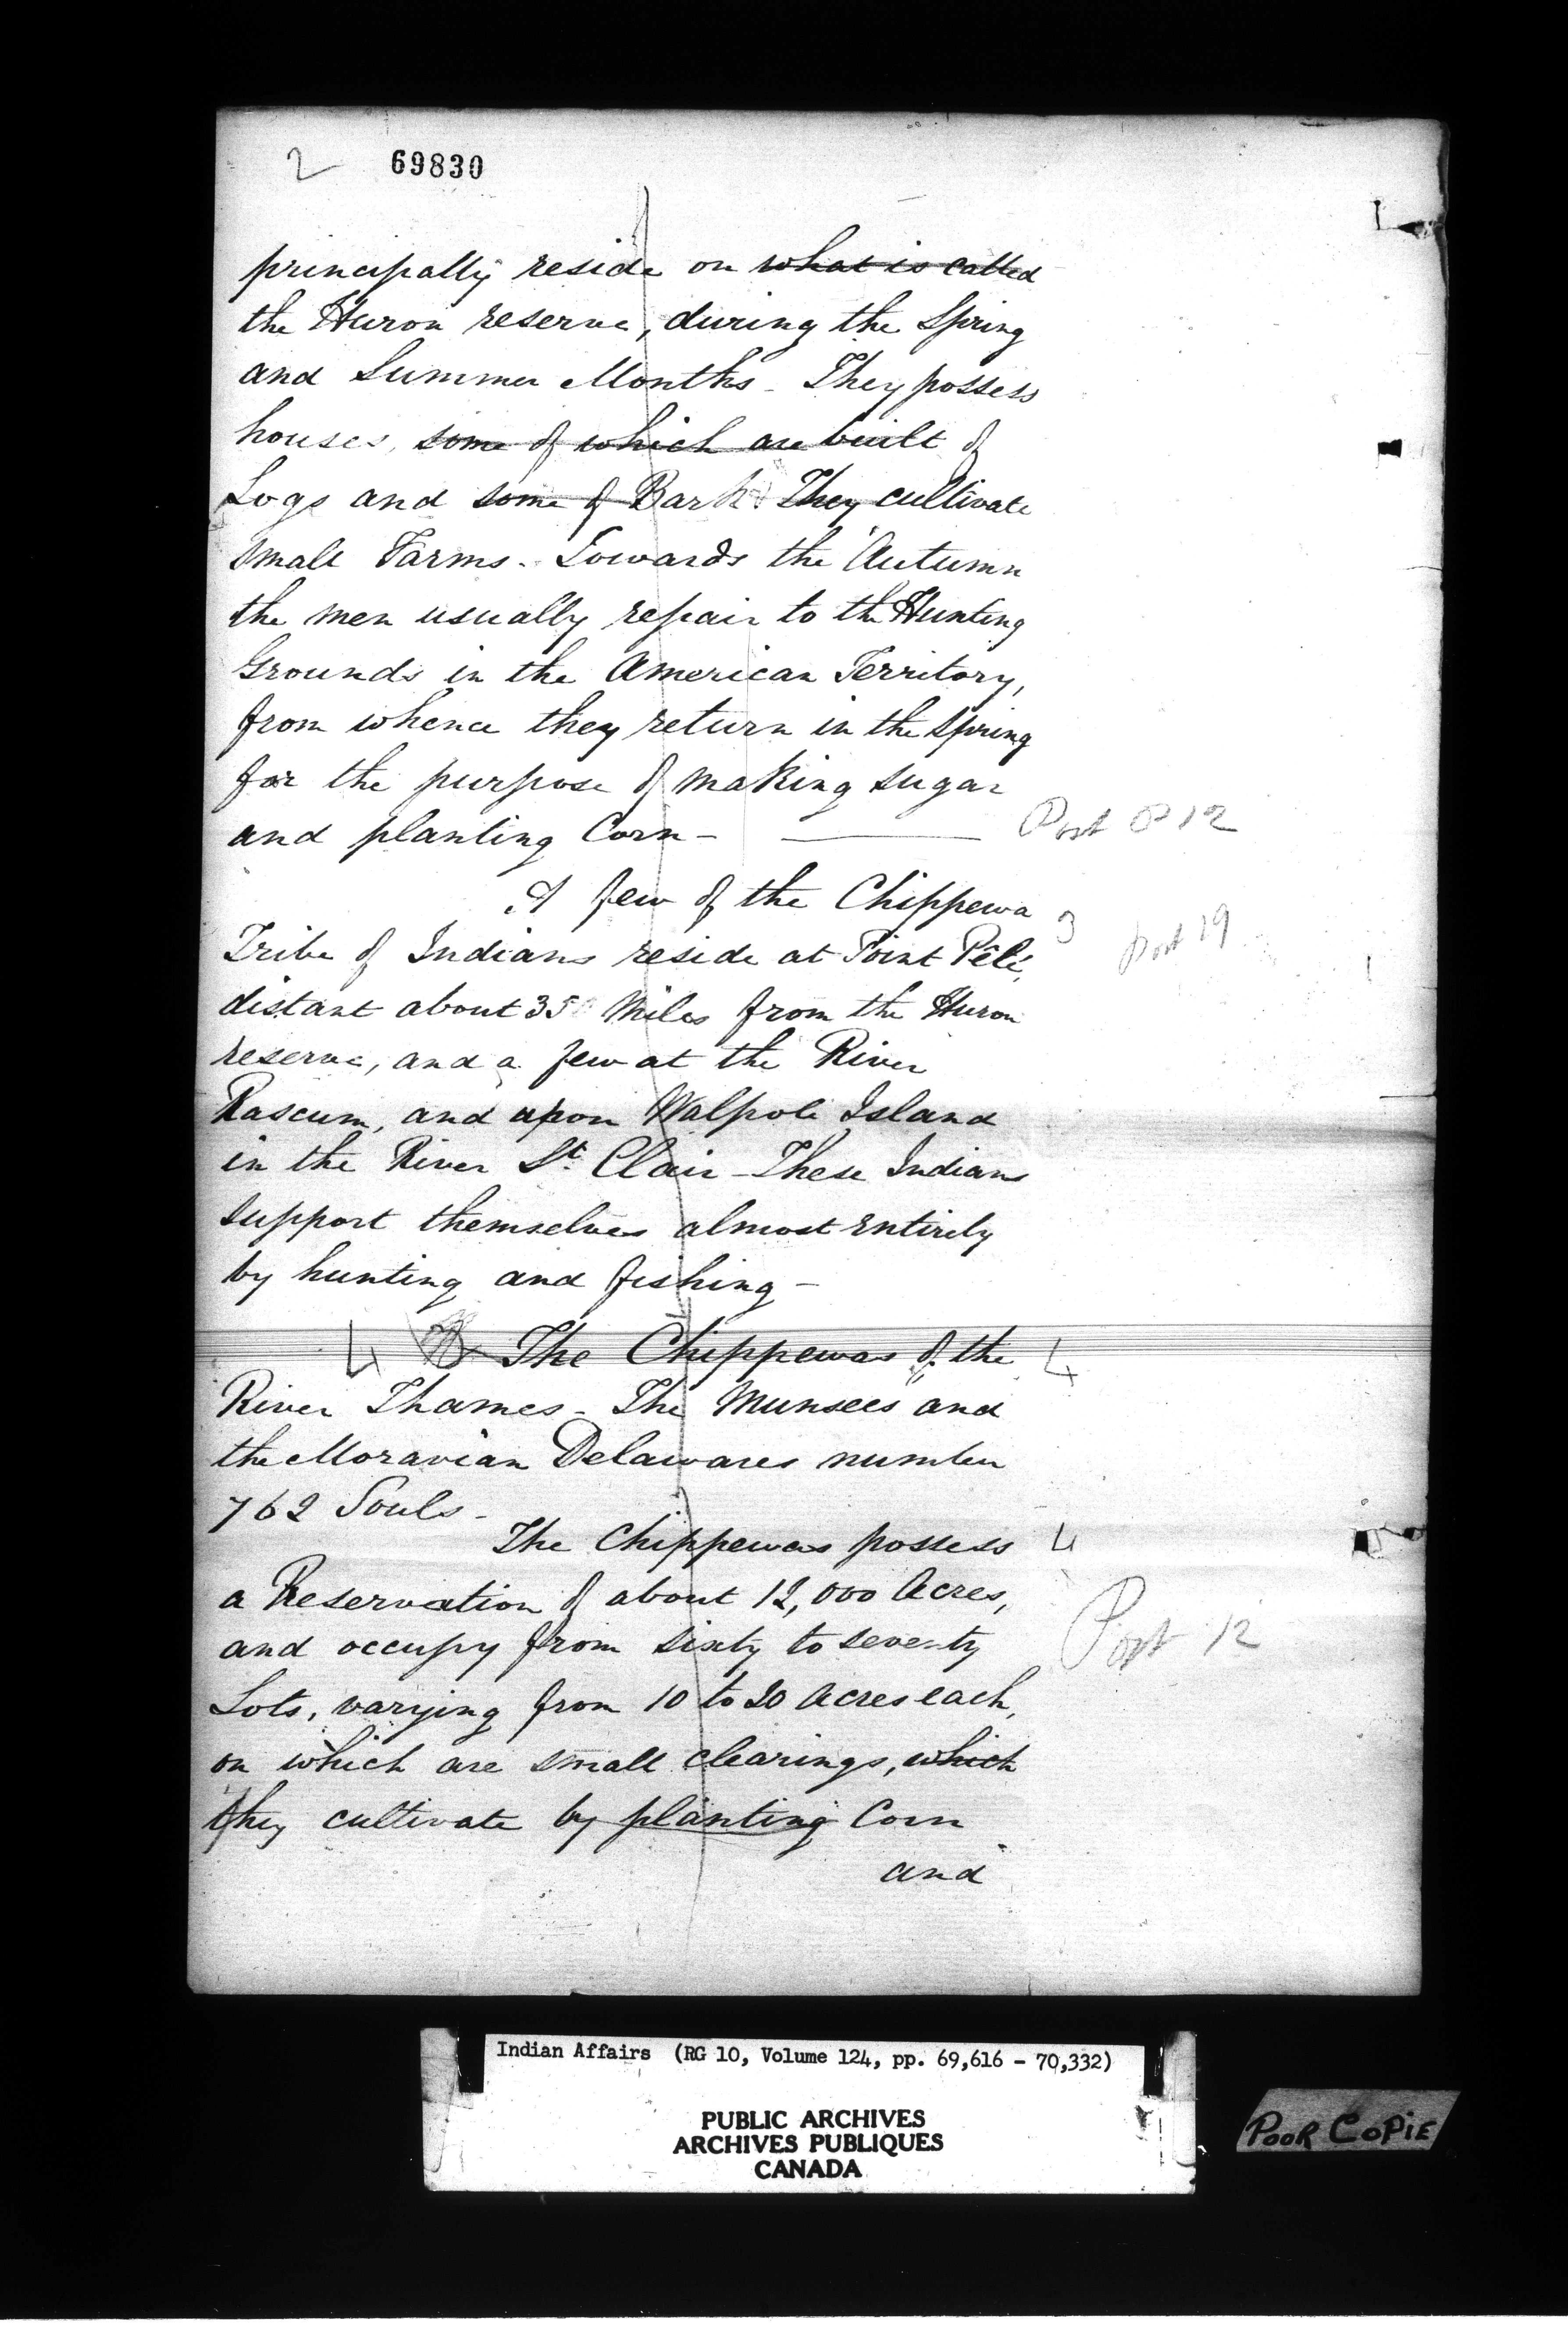 2 69830
principally reside on what is called
the Huron reserve, during the Spring
and Summer Months - They possess
houses, some of which are built of
Logs and some of Bark They cultivate
small Farms - Towards the Autumn
the men usually repair to the Hunting
Grounds in the American Territory,
from whence they return in the Spring
for the purpose of making sugar
and planting Corn -
Post P 12
A few of the Chippewa
3 Post 19
Tribe of Indians reside at Point Pelé,
distant about 35 Miles from the Huron
reserve, and a few at the River
Rascum, and upon Walpole Island
in the River St. Clair - These Indians
support themselves almost entirely
by hunting and fishing -
4 The Chippewas of the 4
River Thames - The Munsees and
the Moravian Delawares number
762 Souls -
The Chippewas possess 4
a Reservation of about 12,000 Acres,
and occupy from sixty to seventy
Post 12
Lots, varying from 10 to 20 Acres each,
on which are small clearings, which
they cultivate by planting Corn
and
Indian Affairs (RG 10, Volume 124, pp. 69,616 - 70,332)
PUBLIC ARCHIVES
ARCHIVES PUBLIQUES
CANADA
POOR COPIE